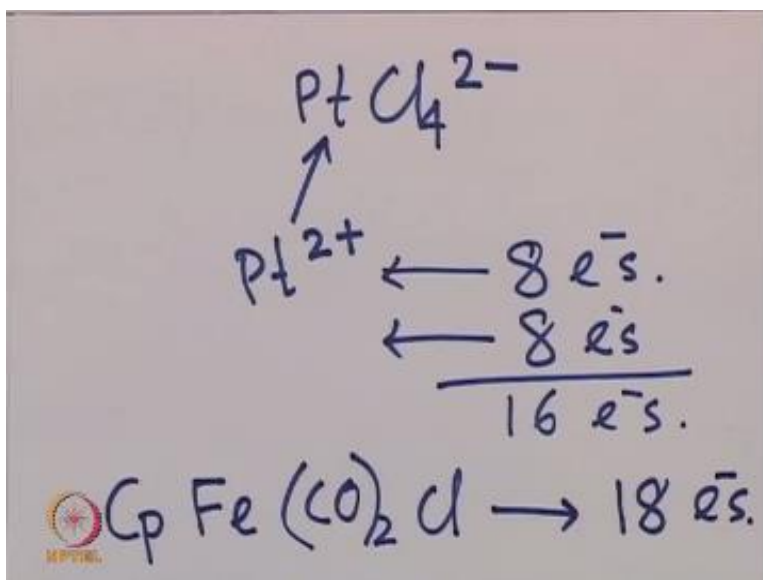 PtCl₄²⁻
Pt²⁺ ← 8 e⁻s.
← 8 e⁻s
16 e⁻s.
Cp Fe (CO)₂ Cl → 18 e⁻s.
NPTEL